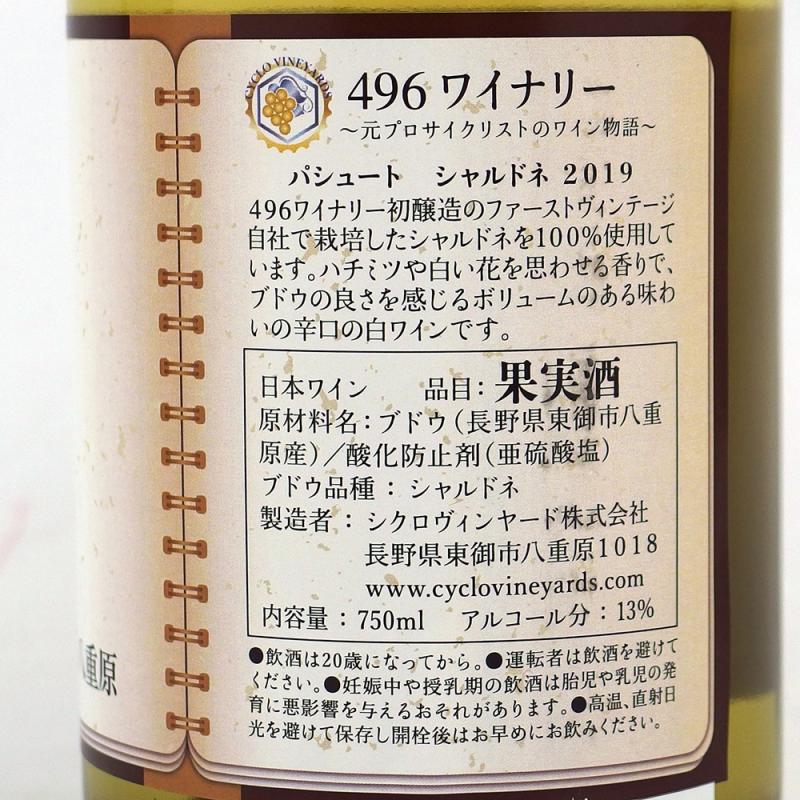 CYCLO VINEYARDS
496 ワイナリー
～元プロサイクリストのワイン物語～
パシュート シャルドネ 2019
496ワイナリー初醸造のファーストヴィンテージ
自社で栽培したシャルドネを100%使用して
います。ハチミツや白い花を思わせる香りで、
ブドウの良さを感じるボリュームのある味わ
いの辛口の白ワインです。
日本ワイン 品目：果実酒
原材料名：ブドウ（長野県東御市八重
原産）／酸化防止剤（亜硫酸塩）
ブドウ品種：シャルドネ
製造者：シクロヴィンヤード株式会社
長野県東御市八重原1018
www.cyclovineyards.com
内容量：750ml アルコール分：13%
●飲酒は20歳になってから。●運転者は飲酒を避けて
ください。●妊娠中や授乳期の飲酒は胎児や乳児の発
育に悪影響を与えるおそれがあります。●高温、直射日
光を避けて保存し開栓後はお早めにお飲みください。
重原